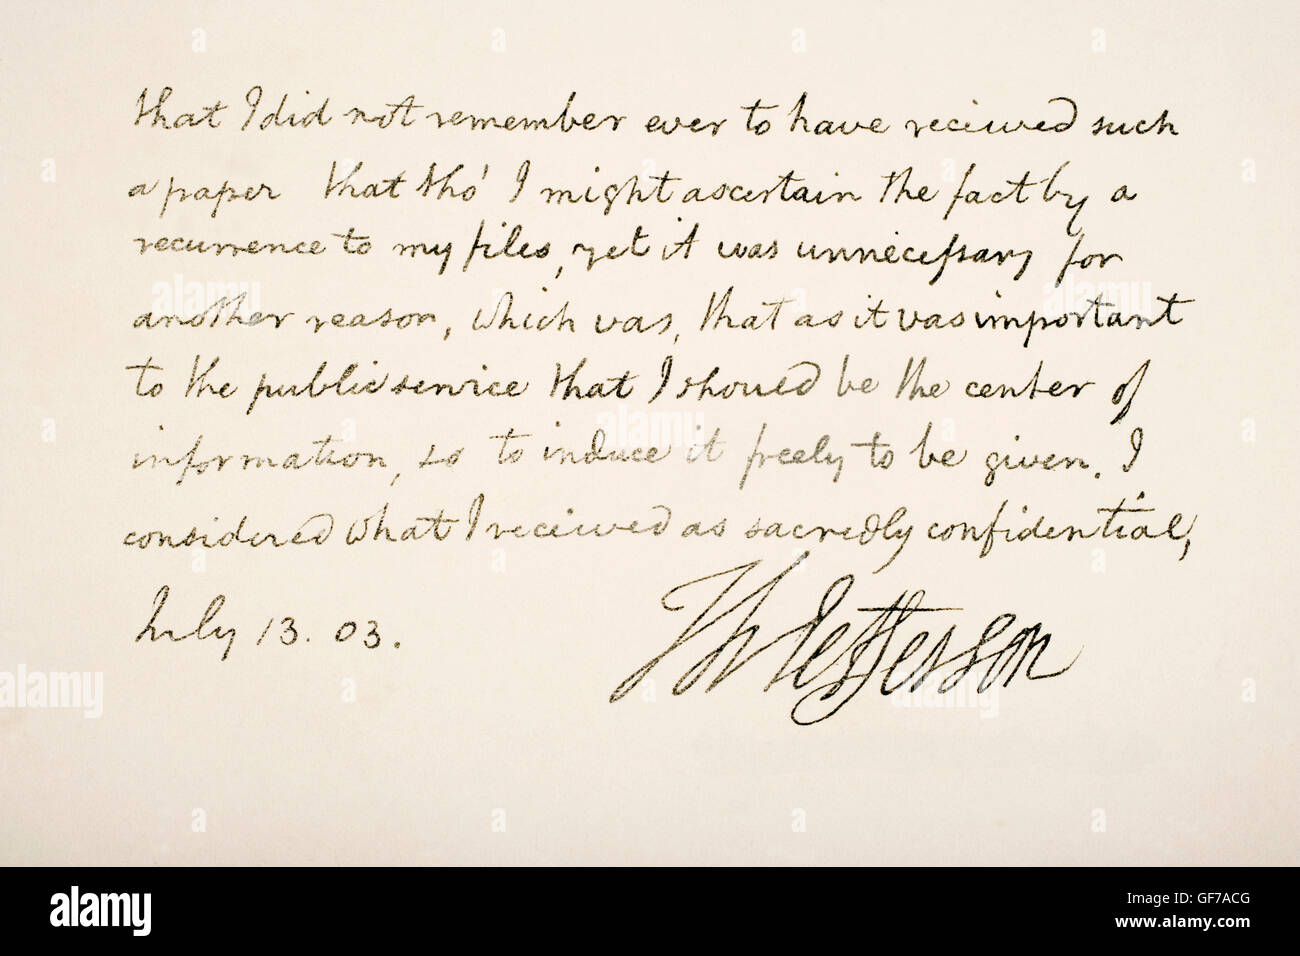 that I did not remember ever to have recieved such
a paper that tho' I might ascertain the fact by a
recurrence to my files, yet it was unnecessary for
another reason, which was, that as it was important
to the public service that I should be the center of
information, so to induce it freely to be given. I
considered what I recieved as sacredly confidential,
July 13. 03.
Th Jefferson
alamy
Image ID: GF7ACG
www.alamy.com